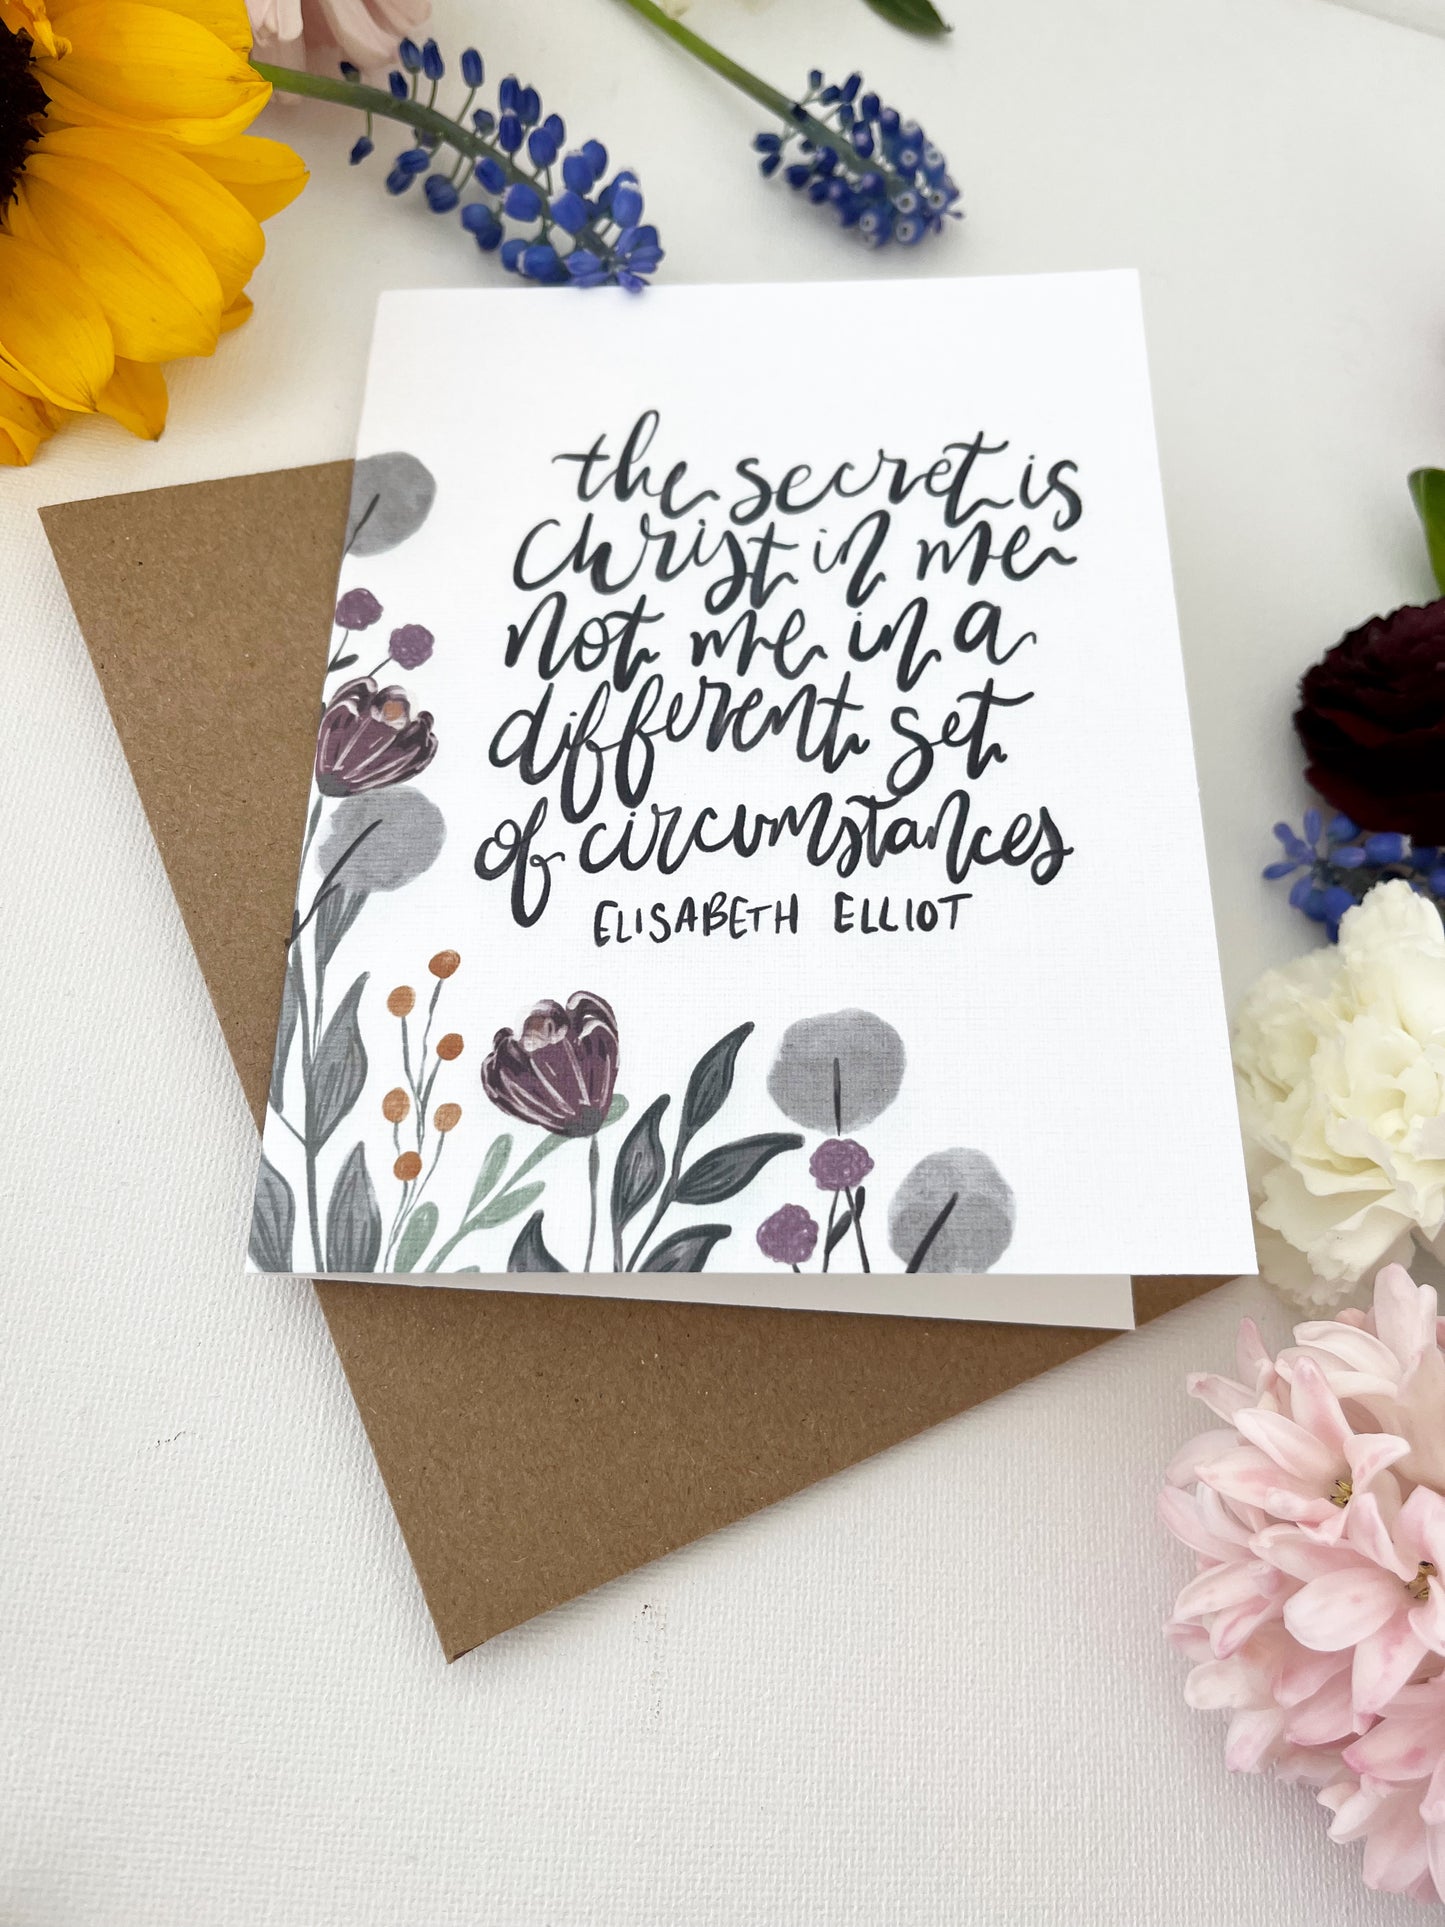 the secret is
Christ in me
not me in a
different set
of circumstances
ELISABETH ELLIOT